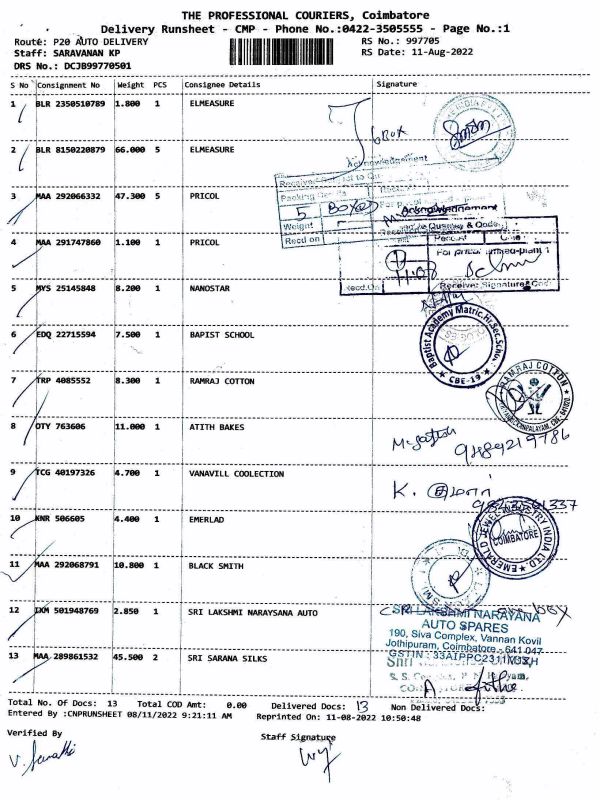 THE PROFESSIONAL COURIERS, Coimbatore
Delivery Runsheet - CMP - Phone No.:0422-3505555 - Page No.:1
Route: P20 AUTO DELIVERY RS No.: 997705
Staff: SARAVANAN KP RS Date: 11-Aug-2022
DRS No.: DCJB99770501
S No Consignment No Weight PCS Consignee Details Signature
1 BLR 2350510789 1.800 1 ELMEASURE
6 Box
2 BLR 8150220879 66.000 5 ELMEASURE
Acknowledgement
3 MAA 292066332 47.300 5 PRICOL
5 Boxes
Weight
Recd on
Acknowledgement
4 MAA 291747860 1.100 1 PRICOL
11/08
Recd.On Receiver Signature
5 MYS 25145848 8.200 1 NANOSTAR
6 EDQ 22715594 7.500 1 BAPIST SCHOOL
Baptist Academy Matric.Hr.Sec.School
CBE-19
7 TRP 4085552 8.300 1 RAMRAJ COTTON
RAMRAJ COTTON
8 OTY 763606 11.000 1 ATITH BAKES
9489219786
9 TCG 40197326 4.700 1 VANAVILL COOLECTION
K.
10 KNR 506605 4.400 1 EMERLAD
EMERALD JEWEL INDUSTRY INDIA LTD.
COIMBATORE
11 MAA 292068791 10.800 1 BLACK SMITH
12 IXM 501948769 2.850 1 SRI LAKSHMI NARAYSANA AUTO
SRI LAKSHMI NARAYANA
AUTO SPARES
190, Siva Complex, Vannan Kovil
Jothipuram, Coimbatore - 641 047
13 MAA 289861532 45.500 2 SRI SARANA SILKS
Total No. Of Docs: 13 Total COD Amt: 0.00 Delivered Docs: 13 Non Delivered Docs:
Entered By :CNPRUNSHEET 08/11/2022 9:21:11 AM Reprinted On: 11-08-2022 10:50:48
Verified By Staff Signature